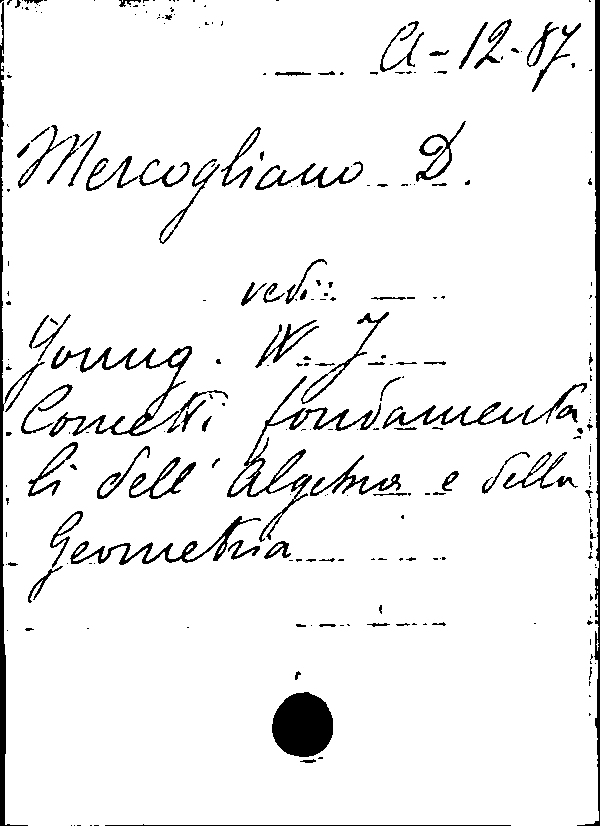 A-12-87.
Mercogliano D.
vedi:
Young. W. J.
Concetti fondamenta
li dell' Algebra e della
Geometria